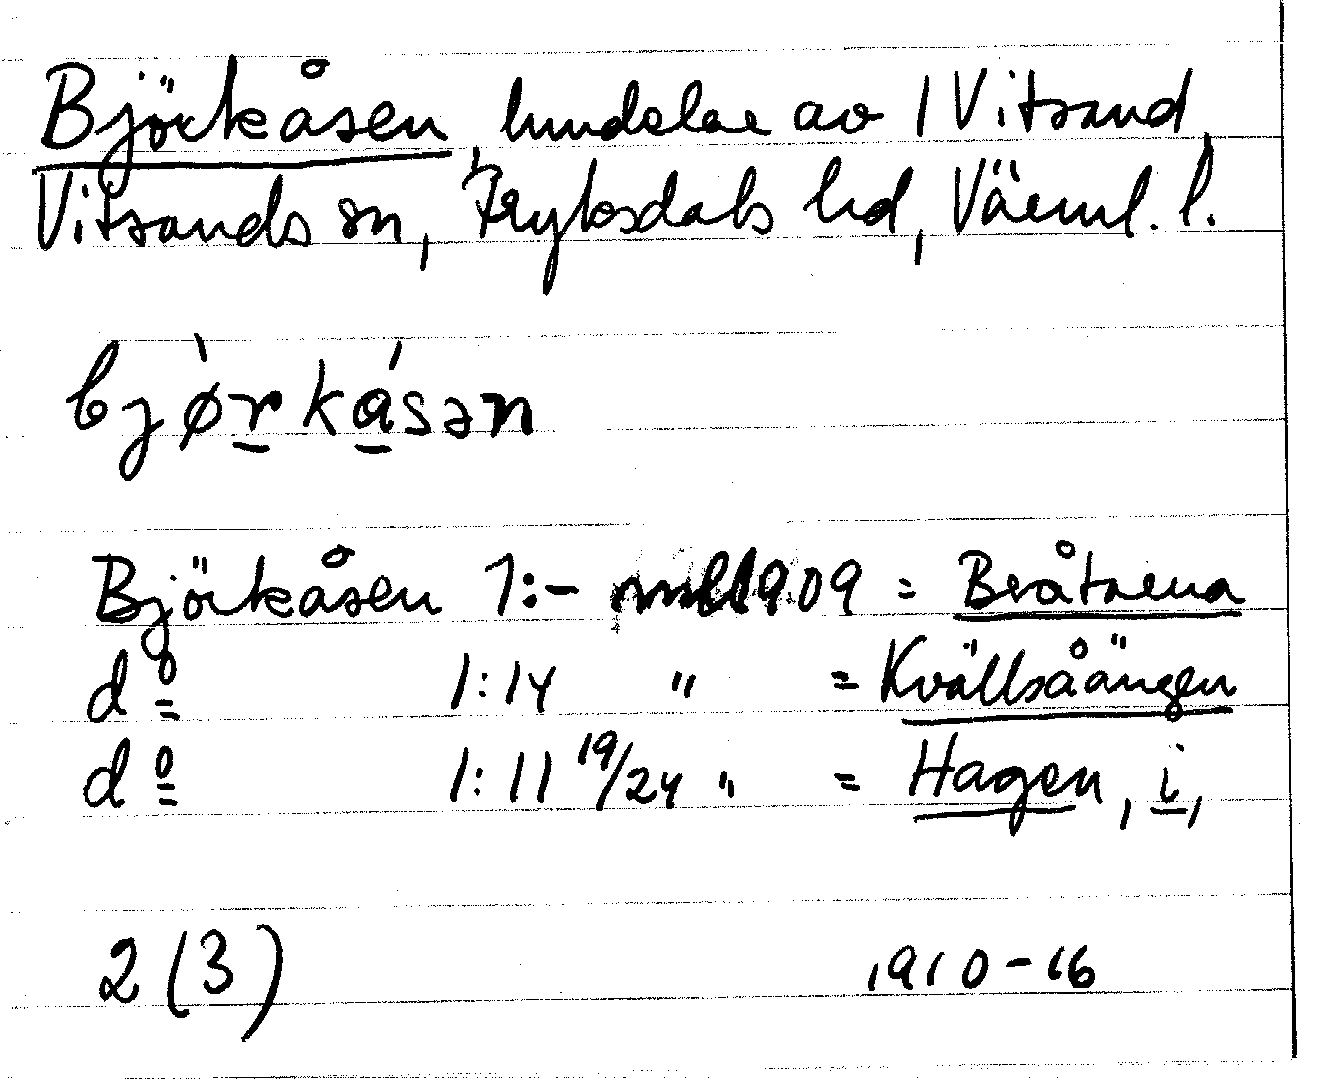 Björkåsen, hmdelar av 1 Vitsand,
Vitsands sn, Fryksdals hd, Värml. l.
bjø̀rkásən
Björkåsen 1:- 1909 = Bråtarna
d:o 1:14 " = Kvällsåängen
d:o 1:11 19/24 " = Hagen, i,
2 (3) 1910-16